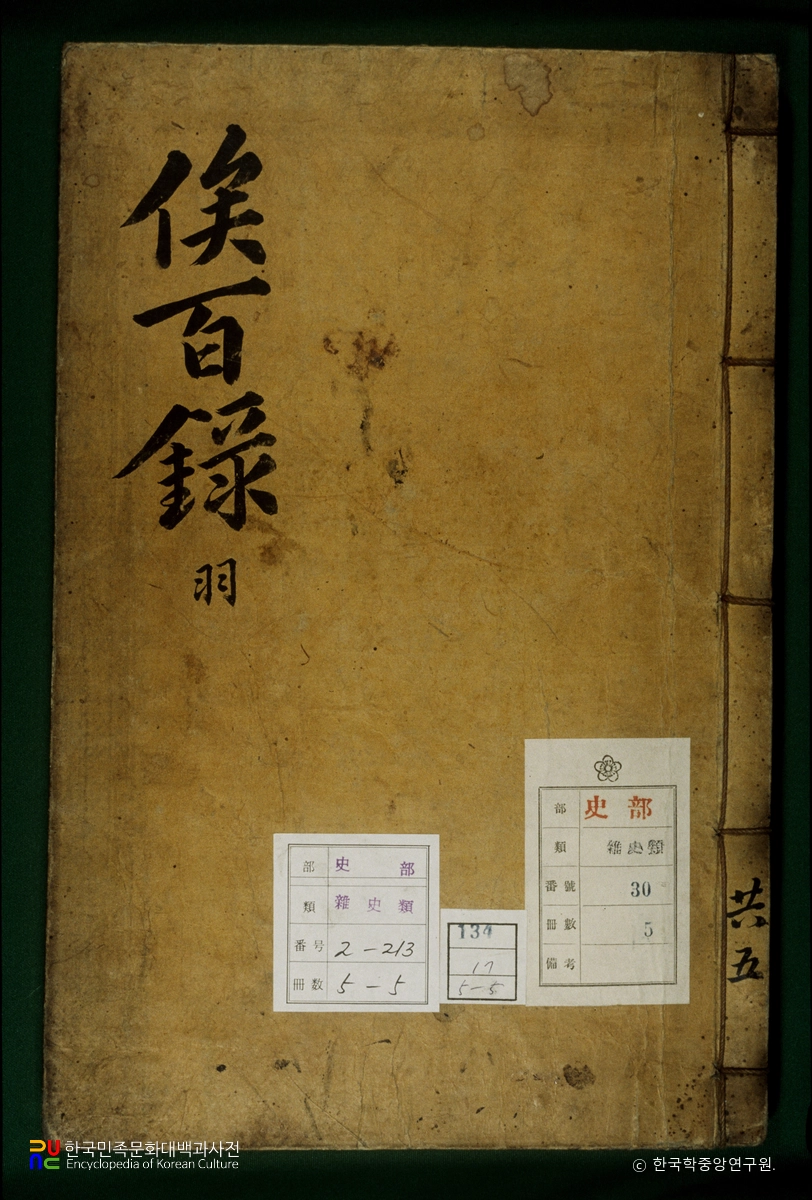 俟百錄
羽
共五
部 史部
類 雜史類
番号 2-213
冊数 5-5
134
17
5-5
部 史部
類 雜史類
番號 30
冊數 5
備考
한국민족문화대백과사전
Encyclopedia of Korean Culture
ⓒ 한국학중앙연구원.